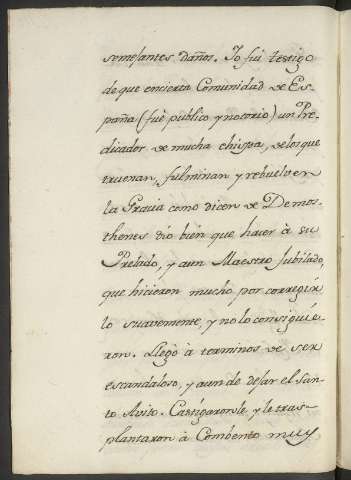 semejantes daños. Yo fui testigo
de que en cierta Comunidad de Es-
paña (fuè publico y notorio) un Pre-
dicador de mucha chispa, de los que
truenan, fulminan y rebuelven
la Grecia como dicen de Demos-
thenes dio bien que hacer à su
Prelado, y aun Maestro Jubilado,
que hicieron mucho por corregir
lo suavemente, y no lo consiguie-
ron. Llegò à terminos de ser
escandaloso, y aun de dejar el San-
to Avito. Castigaronle, y le tras-
plantaron à Combento muy